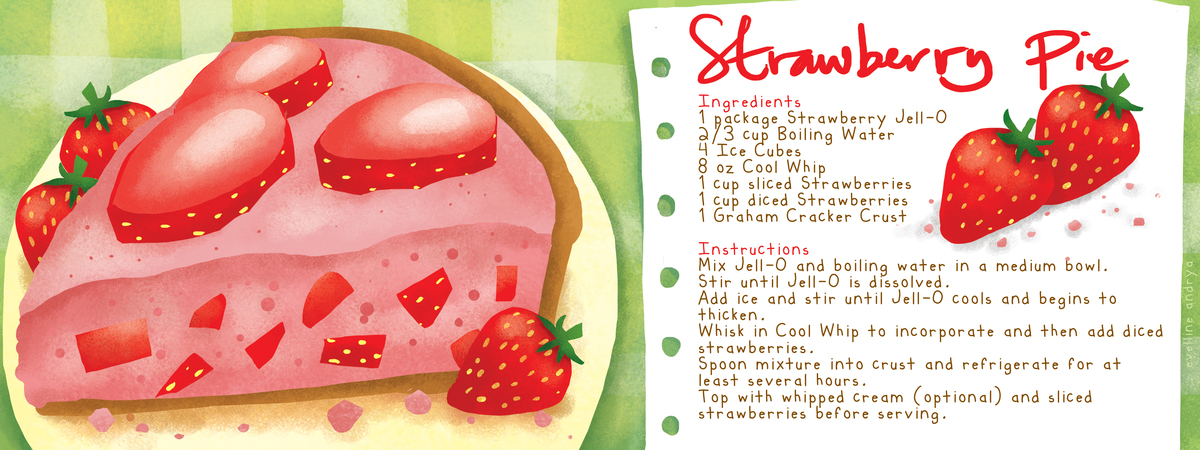 Strawberry Pie
Ingredients
1 package Strawberry Jell-O
2/3 cup Boiling Water
4 Ice Cubes
8 oz Cool Whip
1 cup sliced Strawberries
1 cup diced Strawberries
1 Graham Cracker Crust
Instructions
Mix Jell-O and boiling water in a medium bowl.
Stir until Jell-O is dissolved.
Add ice and stir until Jell-O cools and begins to
thicken.
Whisk in Cool Whip to incorporate and then add diced
strawberries.
Spoon mixture into crust and refrigerate for at
least several hours.
Top with whipped cream (optional) and sliced
strawberries before serving.
eveline andrya